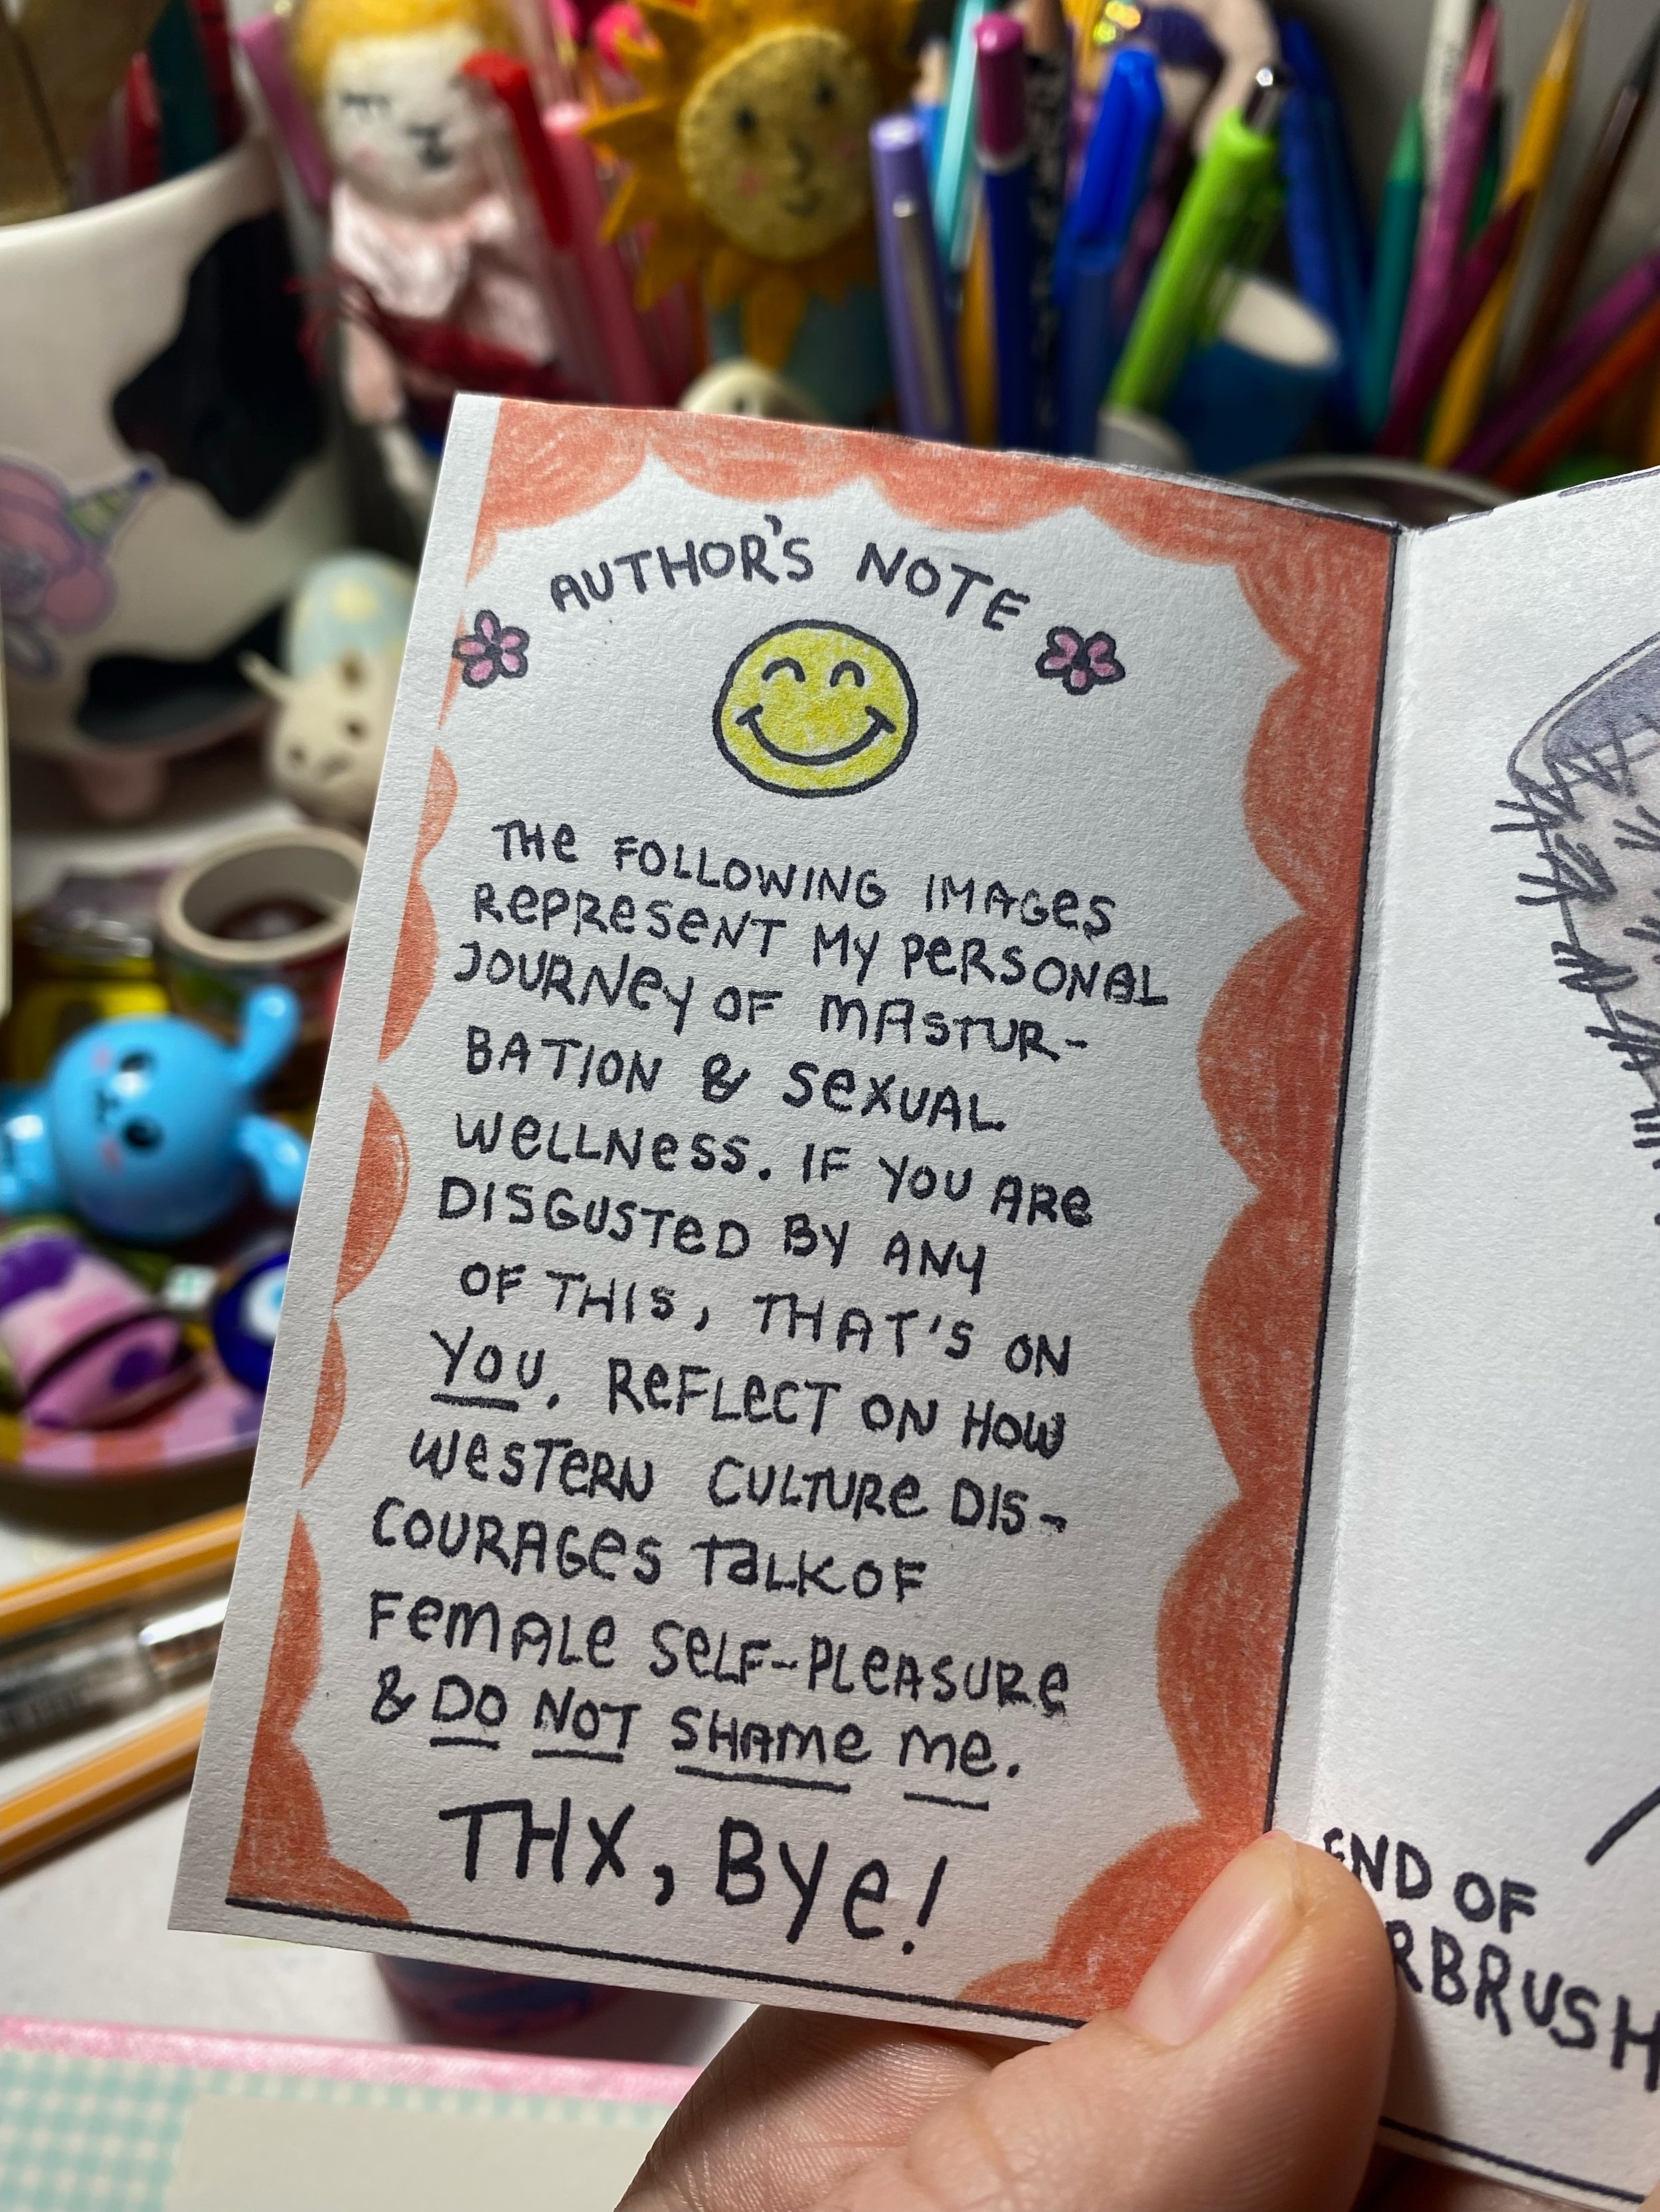 AUTHOR'S NOTE
THE FOLLOWING IMAGES
REPRESENT MY PERSONAL
JOURNEY OF MASTUR-
BATION & SEXUAL
WELLNESS. IF YOU ARE
DISGUSTED BY ANY
OF THIS, THAT'S ON
YOU. REFLECT ON HOW
WESTERN CULTURE DIS-
COURAGES TALK OF
FEMALE SELF-PLEASURE
& DO NOT SHAME ME.
THX, BYE!
END OF
RBRUSH